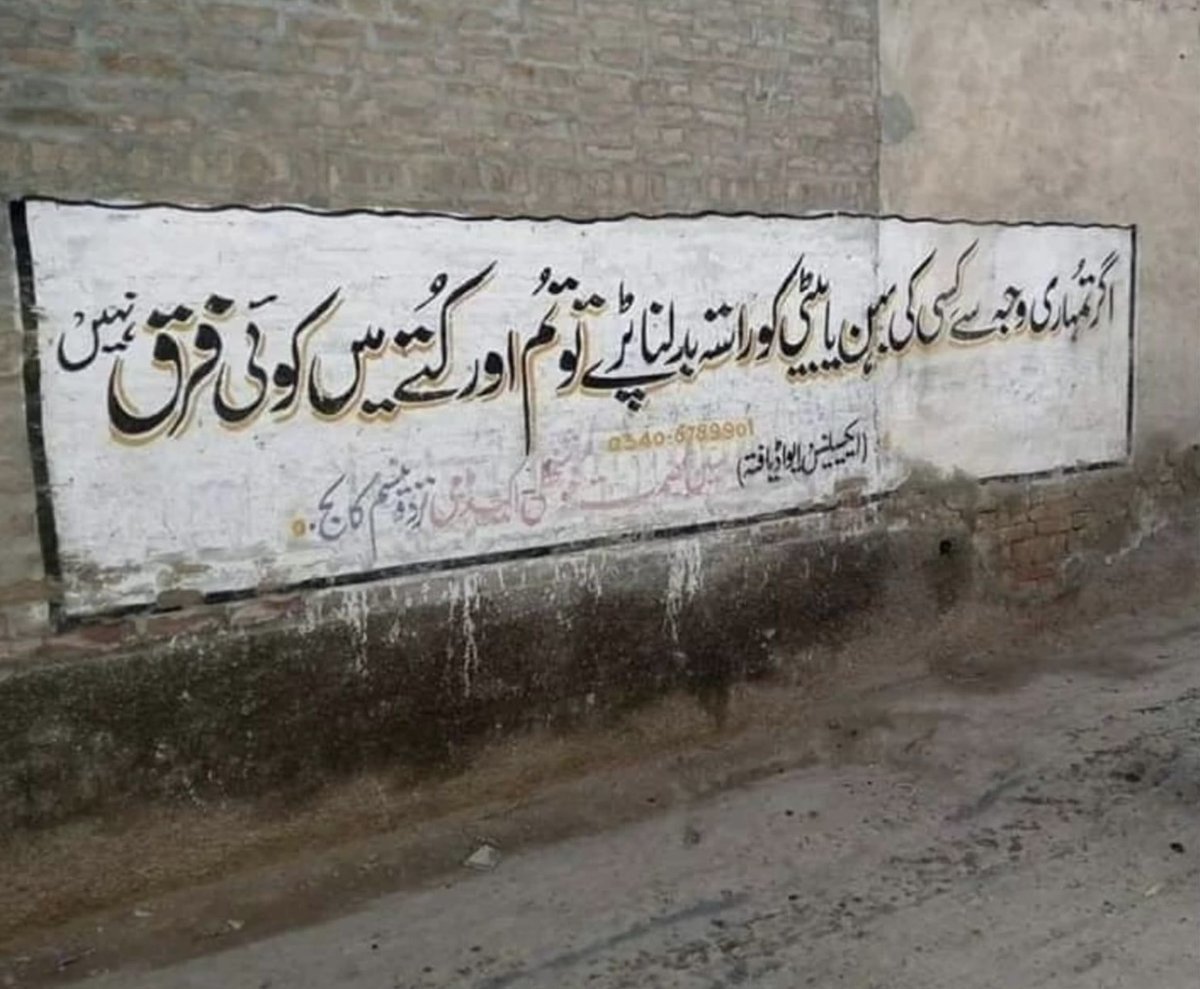 اگر تمہاری وجہ سے کسی کی بہن یا بیٹی کو راستہ بدلنا پڑے تو تُم اور کُتے میں کوئی فرق نہیں
0340-8789901
(ایکسیلینس ایوارڈ یافتہ)
خوشخطی اکیڈمی نزد
کالج